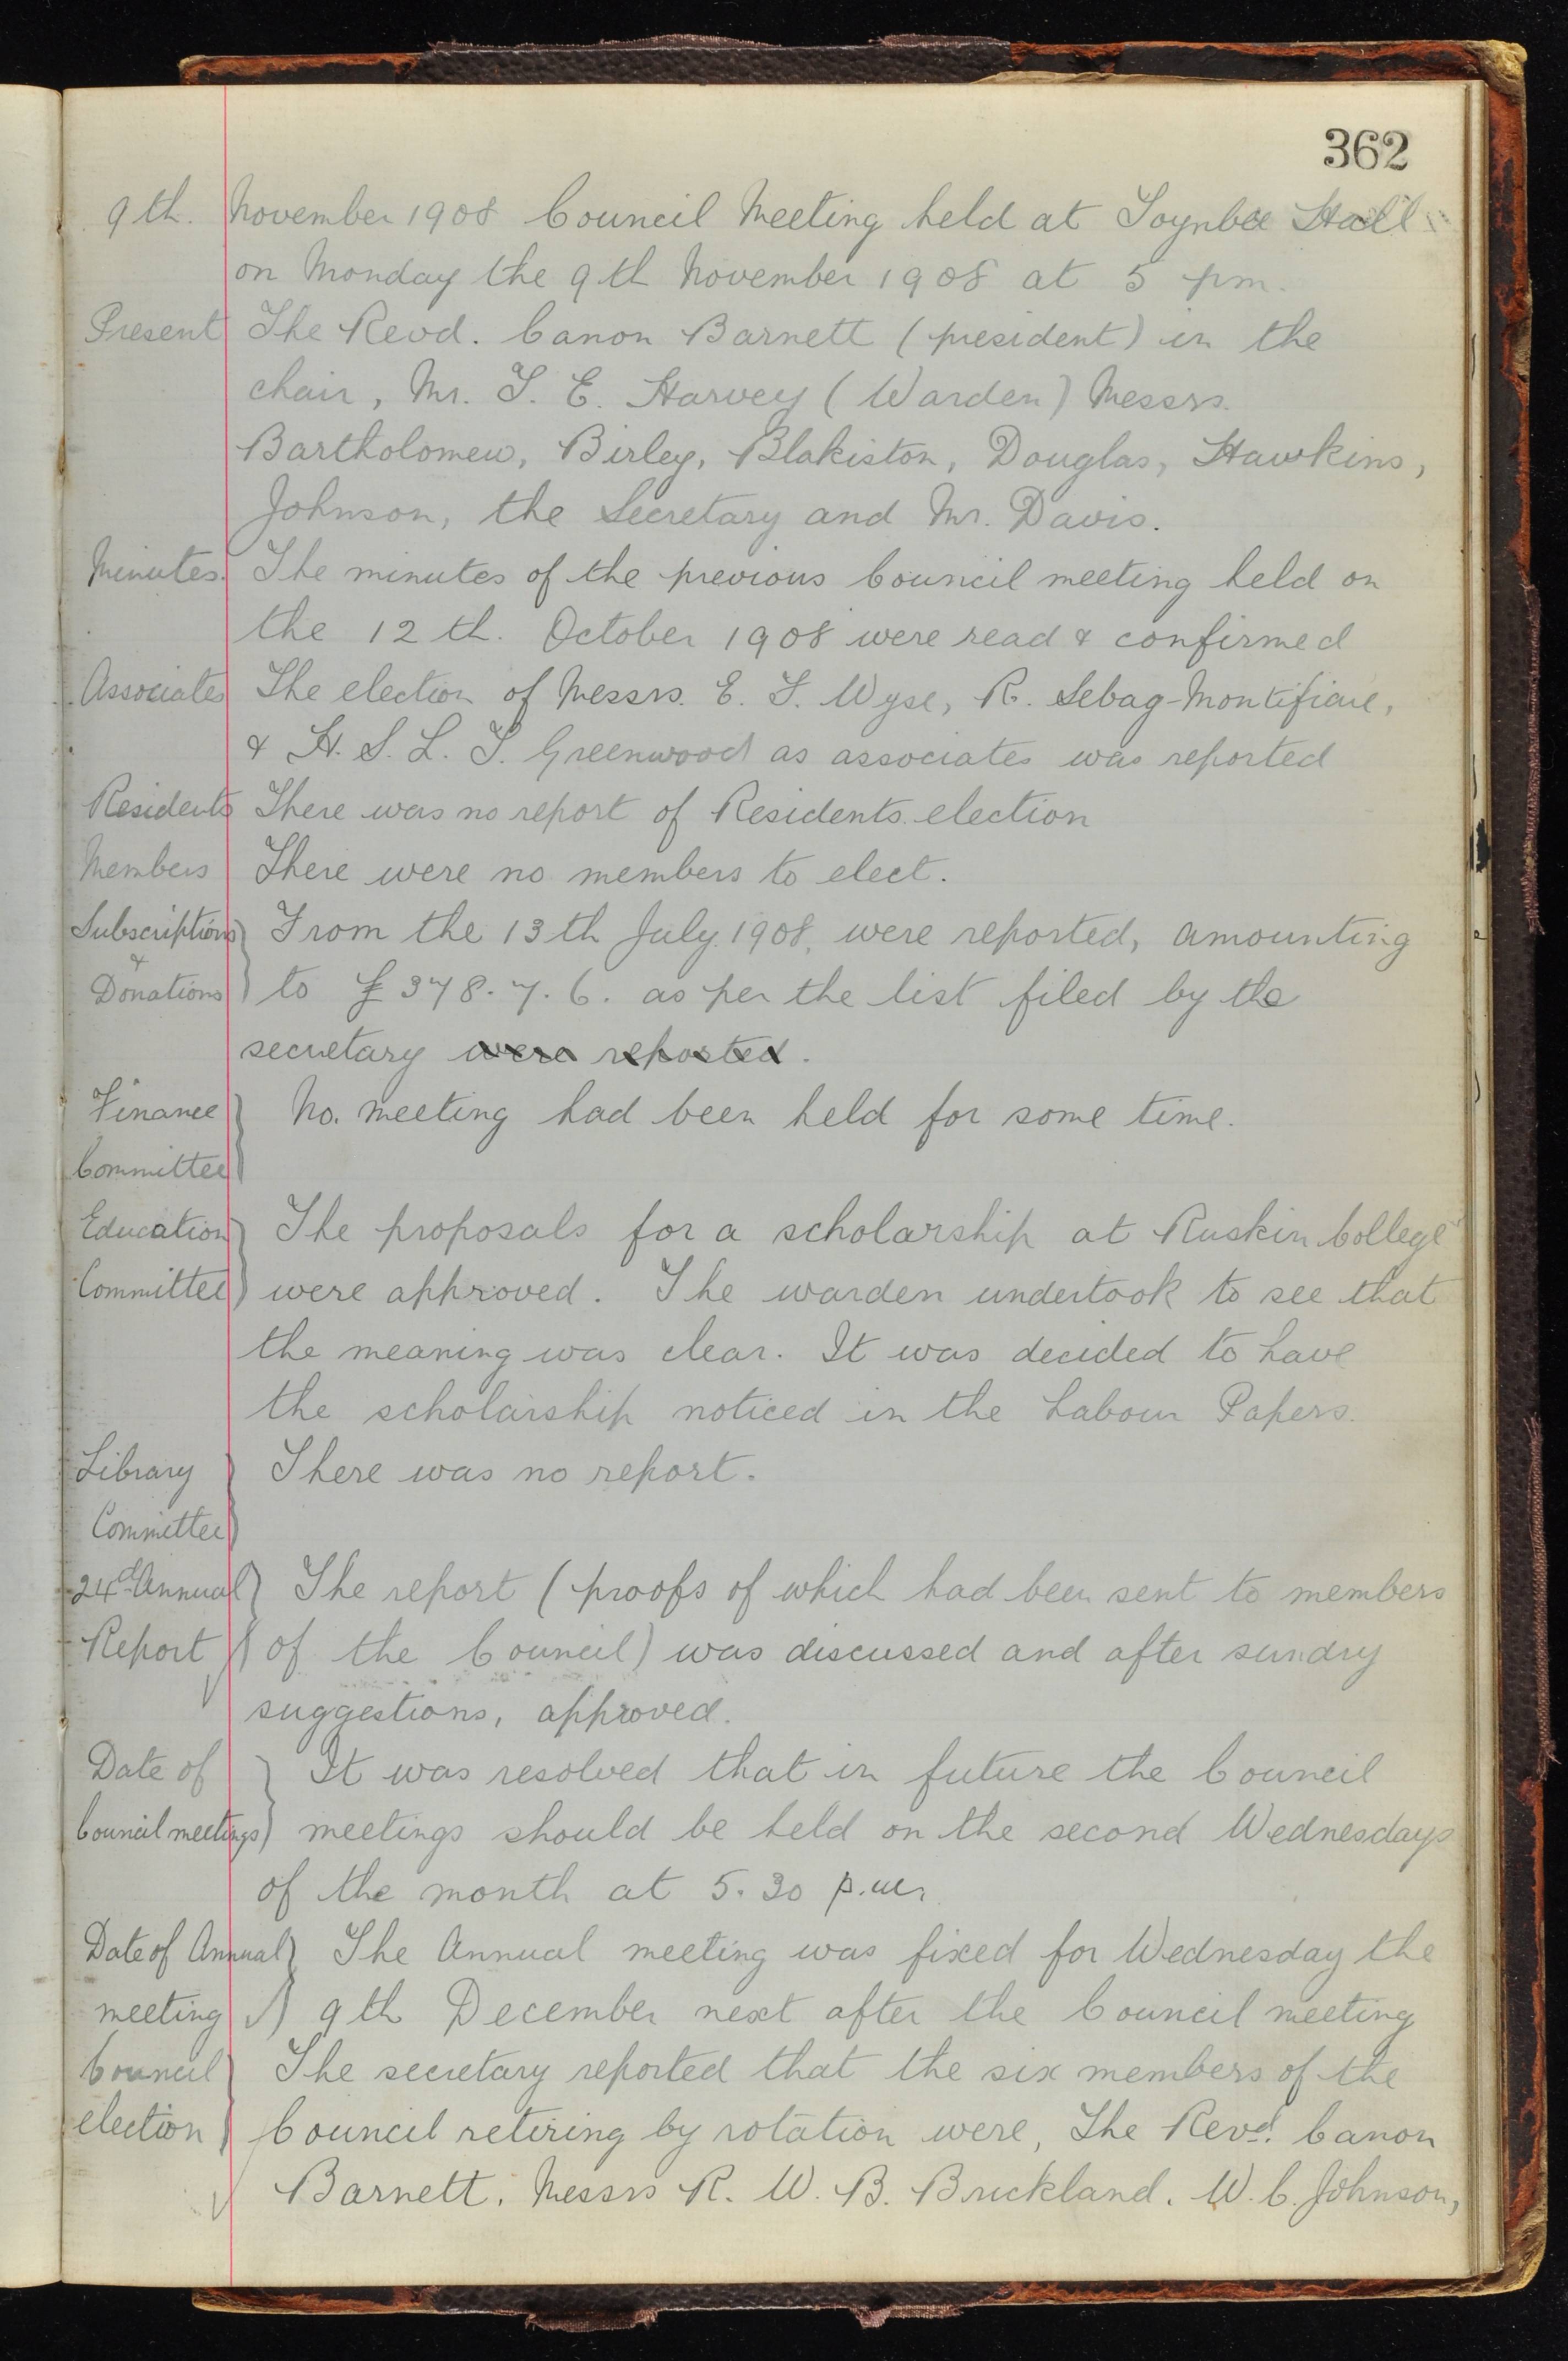 362
9th. November 1908 Council Meeting held at Toynbee Hall
on Monday the 9th November 1908 at 5 pm.
Present The Revd. Canon Barnett (president) in the
chair, Mr. T. E. Harvey (Warden) Messrs.
Bartholomew, Birley, Blakiston, Douglas, Hawkins,
Johnson, the Secretary and Mr. Davis.
Minutes. The minutes of the previous Council meeting held on
the 12th. October 1908 were read & confirmed
Associates The election of Messrs. E. T. Wyse, R. Sebag-Montifiore,
& H. S. L. T. Greenwood as associates was reported
Residents There was no report of Residents election
Members There were no members to elect.
Subscriptions From the 13th July 1908, were reported, amounting
&
Donations to £378.7.6. as per the list filed by the
secretary were reported.
Finance No. meeting had been held for some time.
Committee
Education The proposals for a scholarship at Ruskin College
Committee were approved. The warden undertook to see that
the meaning was clear. It was decided to have
the scholarship noticed in the Labour Papers.
Library There was no report.
Committee
24th Annual The report (proofs of which had been sent to members
Report of the Council) was discussed and after sundry
suggestions, approved.
Date of It was resolved that in future the Council
Council meetings meetings should be held on the second Wednesdays
of the month at 5.30 p.m.
Date of Annual The Annual meeting was fixed for Wednesday the
meeting 9th December next after the Council meeting
Council The secretary reported that the six members of the
election Council retiring by rotation were, The Revd. Canon
Barnett. Messrs R. W. B. Buckland. W. C. Johnson,